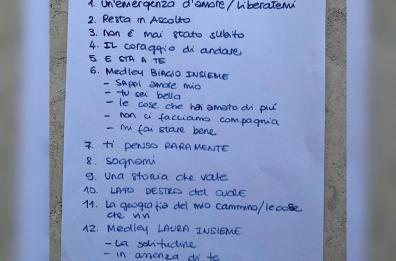 1. Un'emergenza d'amore/Liberatemi
2. Resta in Ascolto
3. non è mai stato subito
4. IL coraggio di andare
5. E STA A TE
6. Medley BIAGIO INSIEME
- SAPPI amore mio
- tu sei bella
- le cose che hai amato di più
- non ci facciamo compagnia
- mi fai stare bene
7. ti PENSO RARAMENTE
8. Sognami
9. Una storia che vale
10. LATO DESTRO del CUORE
11. La geografia del mio cammino/le cose
che vivi
12. Medley LAURA INSIEME
- La solitudine
- in assenza di te